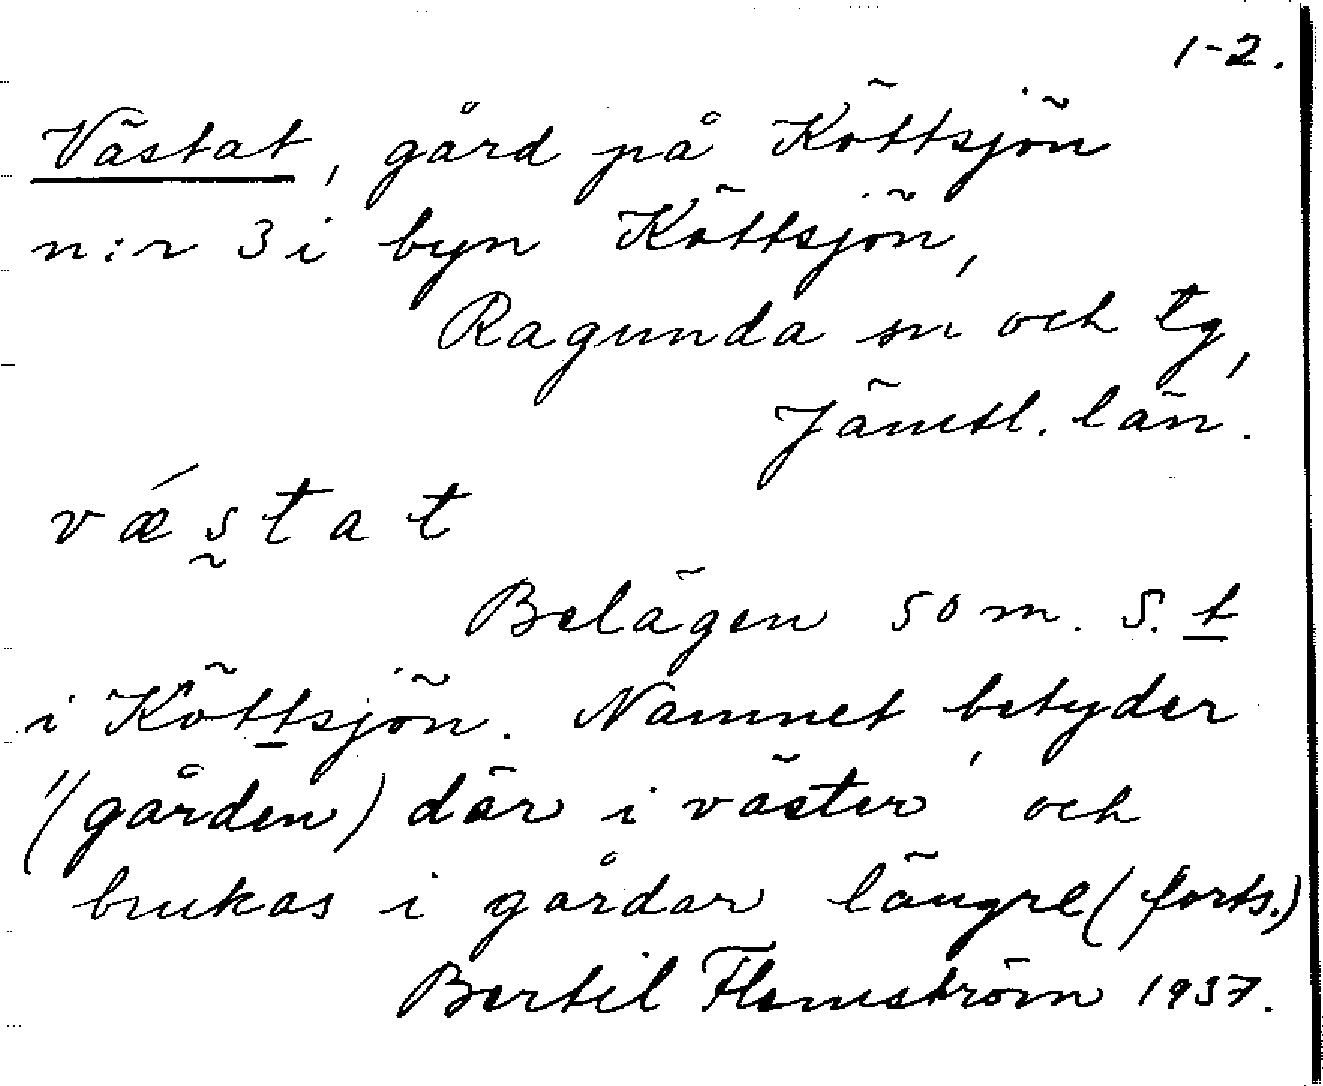 1-2.
Västat, gård på Köttsjön
n:r 3 i byn Köttsjön,
Ragunda sn och tg,
Jämtl. län.
væ´stat
Belägen 50 m. S. t
i Köttsjön. Namnet betyder
"(gården) där i väster' och
brukas i gårdar längre (forts.)
Bertil Flemström 1937.